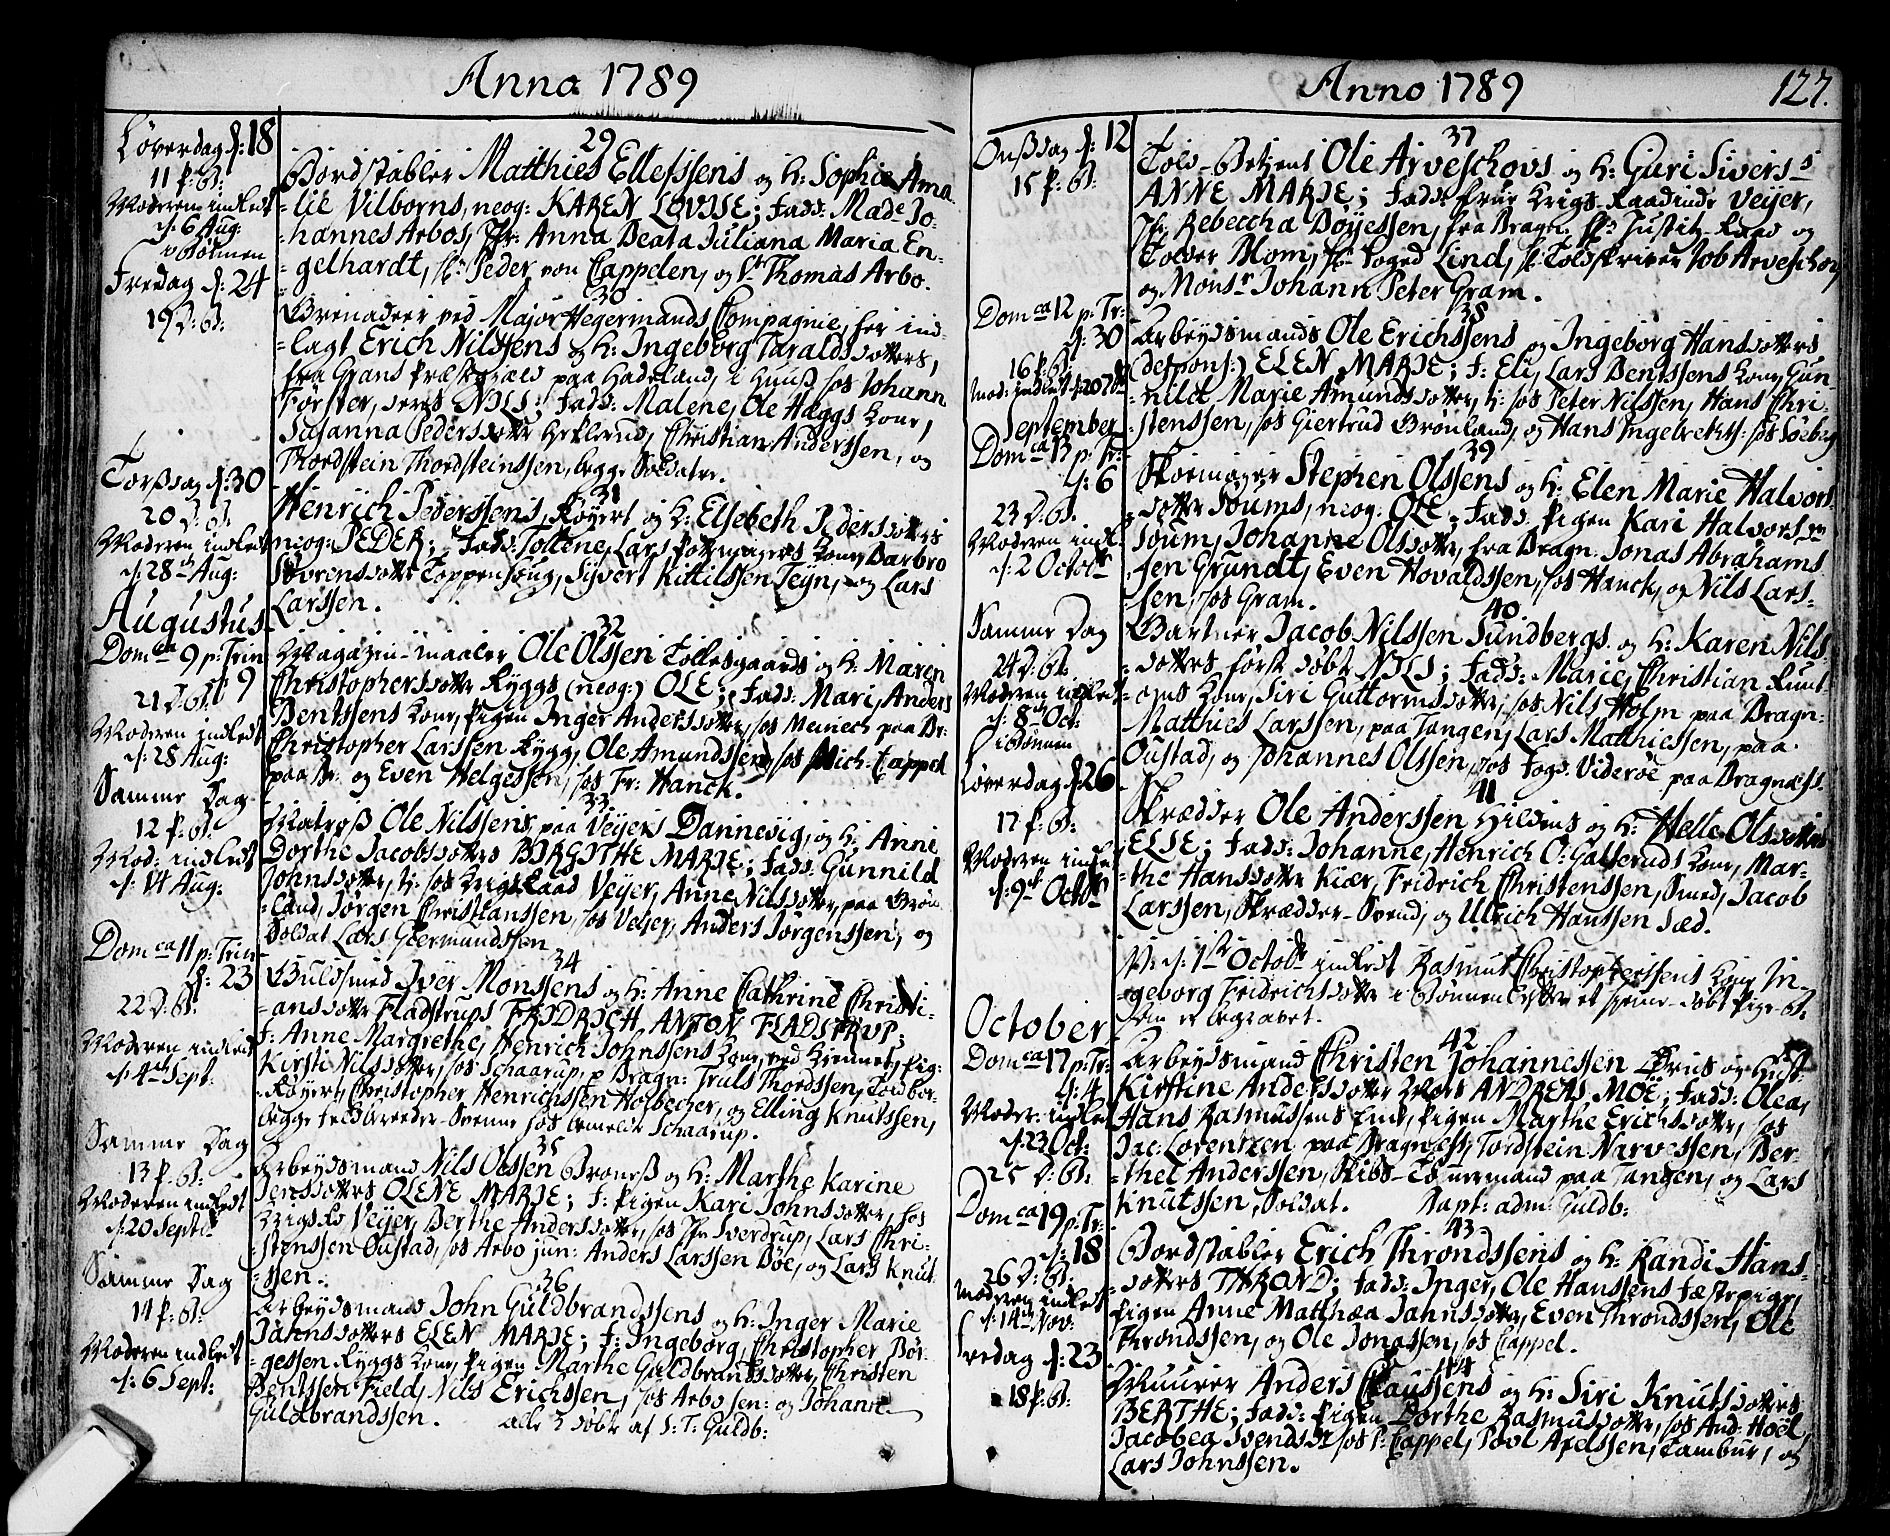 Anno 1789
Løverdag d: 18
11 P: B:
Moderen indledt
d: 6 Aug:
i Bønnen
Fredag d: 24
19 D: B:
Torßdag d: 30
20 D: B:
Moderen indledt
d: 28 Aug:
Augustus
Dom ca 9 p: Trin
d: 9
21 D: B:
Moderen indledt
d: 28 Aug:
Samme Dag
12 P: B:
Mod: indledt
d: 14 Aug:
Dom ca 11 p: Trin
d: 23
22 D: B:
Moderen indledt
d: 4 Sept:
Samme Dag
13 P: B:
Moderen indledt
d: 20 Sept:
Samme Dag
14 P: B:
Moderen indledt
d: 6 Sept:
29
Bordstabler Matthies Ellefssens og H: Sophie Ama
=lie Vilborns, neog: KAREN LOVISE; Fadd: Made Jo-
=hannes Arbos, Jfr: Anna Beata Juliana Maria En-
=gelhardt, Hr: Peder von Cappelen, og Thomas Arbo.
30
Grenadeer ved Major Hegermands Compagnie, her ind-
=lagt Erich Nilssens og H: Ingeborg Taraldsdotters,
fra Grans Præstegield paa Hadeland, i Huus hos Johann
Torster, deres NILS; Fadd: Malene, Ole Hæggs Kone,
Susanna Pedersdotter Heklend, Christian Anderssen, og
Thordstein Thordsteinssen, begge Soldater.
31
Henrich Pederssens, Røyert og H: Elsebeth Pedersdotters
neog: PEDER; Fadd: Toltene, Lars Pottemagers Kone, Barbro
Sørensdotter Toppenhoug, Syvert Kittilssen Teyn, og Lars
Larssen.
32
Magazin-maaler Ole Olssen Tollesgaards og H: Maren
Christophersdotter Ryggs (neog:) OLE; Fadd: Mari, Anders
Bentssens Kone, Pigen Inger Andersdotter, hos Meinech paa Br:
Christopher Larssen Rygg, Ole Amundssen, hos Mich: Cappel
paa Br: og Even Helgessen, hos Fr: Hanck.
33
Matroß Ole Nilssens, paa Veyers Dannevig, og H: Anne
Dorthe Jacobsdotters BIRGITHE MARIE; Fadd: Gunnild
Johnsdotter, H: hos Krigs Raad Veyer, Anne Nilsdotter, paa Grøn
=land, Jørgen Christianssen, hos Veyer, Anders Jørgenssen, og
Soldat Lars Geermundssen
34
Guldsmed Iver Monssens og H: Anne Cathrine Christi-
=ansdotter Fladstrups FRIDRICH ANTON FLADSTRUP;
F: Anne Margrethe, Henrich Johnssens Kone, ved Kremmer, Pig:
Kirsti Nilsdotter, hos Schaarup, p: Bragn: Truls Thordssen, Toldbor-
Røyert, Christopher Henrichssen Holbecher, og Elling Knutssen,
begge Feldbereeder-Svenne hos Cornelie Schaarup.
35
Arbeydsmand Nils Olssen Broneß og H: Marthe Karine
Jensdotters OLENE MARIE; F: Pigen Kari Johnsdotter, hos
Krigs Rd Veyer, Berthe Andersdotter, hos Jfr Sverdrup, Lars Chri-
=stenssen Oustad, hos Arbo jun: Anders Larssen Bøe, og Lars Knut
=ssen.
36
Arbeydsmand John Guldbrandssens og H: Inger Marie
Jahnsdotters ELEN MARIE; F: Ingeborg, Christopher Bør-
=gessen Ryggs Kone, Pigen Marthe Guldbrandsdotter, Christen
Bentssen Field, Nils Erichssen, hos Arbo sen: og Johann
Guldbrandssen. alle 3 døbt af S: T: Guldb:
Anno 1789 127.
Onßdag d: 12
15 P: B:
Dom ca 12 p: Tr:
d: 30
16 P: B:
Mod: indledt d: 20 7br
September
Dom ca 13 p: Tr:
d: 6
23 D: B:
Moderen indl:
d: 2 Octobr
Samme Dag
24 D: B:
Moderen indledt
d: 8 Oct:
i Bønnen
Løverdag d: 26
17 P: B:
Moderen indle
d: 9 Octobr
October
Dom ca 17 p: Tr:
d: 4
Moder: indledt
d: 23 Oct:
25 D: B:
Dom ca 19 p: Tr:
d: 18
26 D: B:
Moderen indledt
d: 14 Nov:
Fredag d: 23
18 P: B:
37
Told-Betient Ole Arveschovs og H: Guri Sivers
ANNE MARIE; Fadd: Frue Krigs-Raadinde Veyer,
Jfr Rebeccha Bøyessen, fra Bragn. Hr: Justitz-Raad og
Tolder Blom, Hr: Foged Lind, Hr: Toldskriver Job Arveschov
og Monsr Johann Peter Gram.
38
Arbeydsmands Ole Erichssens og Ingeborg Hansdotters
(desponsf:) ELEN MARIE; F: Eli, Lars Bentssens Kone, Gun-
=nild Marie Amundsdotter, H: hos Peter Nilssen, Hans Chri-
=stenssen, hos Giertrud Grønland, og Hans Ingelvechts: hos Søebyg
39
Skoemager Stephen Olssens og H: Elen Marie Halvors
=dotter Soums, neog: OLE; Fadd: Pigen Kari Halvorsdr
Soum, Johanne Olsdotter, fra Bragn: Jonas Abrahams
=sen Grundt, Even Hovaldssen, hos Hanck, og Nils Lars-
=sen, hos Gram.
40
Gartner Jacob Nilssen Sundbergs og H: Karen Nils-
=dotters først døbt NILS; Fadd: Marie, Christian Runt
=oms Kone, Siri Guttormsdotter, hos Nils Holm paa Bragn:
Matthies Larssen, paa Tangen, Lars Matthiessen, paa
Oustad, og Johannes Olssen, hos Fogd Viderøe paa Bragnæss.
41
Skrædder Ole Anderssen Hildens og H: Helle Olsdotters
ELSE; Fadd: Johanne, Henrich O: Galterud's Kone, Mar-
=the Hansdotter Kiær, Fridrich Christenssen, Smed, Jacob
Larssen, Skrædder-Svend, og Ullrich Hanssen Sæd.
NB: d: 1ste Octobr indledt Rasmus Christopherssens Kone In-
=geborg Fridrichsdotter i Bønnen Efter et hjemme-døbt Pige-B:
som er begravet.
42
Arbeydsmand Christen Johannessen og Hust:
Kirstine Andersdotter Moes ANDREAS MOE; Fadd: Olea,
Hans Rasmussens Enke, Pigen Marthe Erichsdotter, hos
Jac: Lorentzen paa Bragness, Tordstein Narvessen, Ber-
=thel Anderssen, Skibs-Tømmermand paa Tangen, og Lars
Knutssen, Soldat. Bapt: adm: Guldb:
43
Bordstabler Erich Throndssens og H: Randi Hans-
=dotters THROND; Fadd: Inger, Ole Hanssens Fæstepige,
Pigen Anne Matthæa Jahnsdotter, Even Throndssen, Ole
Throndssen, og Ole Jonassen, hos Cappel.
44
Muurer Anders Claussens og H: Siri Knutsdotters
BERTHE; Fadd: Pigen Dorthe Rasmusdotter, hos And: Hoël,
Jacobea Svendsdr hos P: Cappel, Povl Axelssen, Tambur, og
Lars Johnssen.